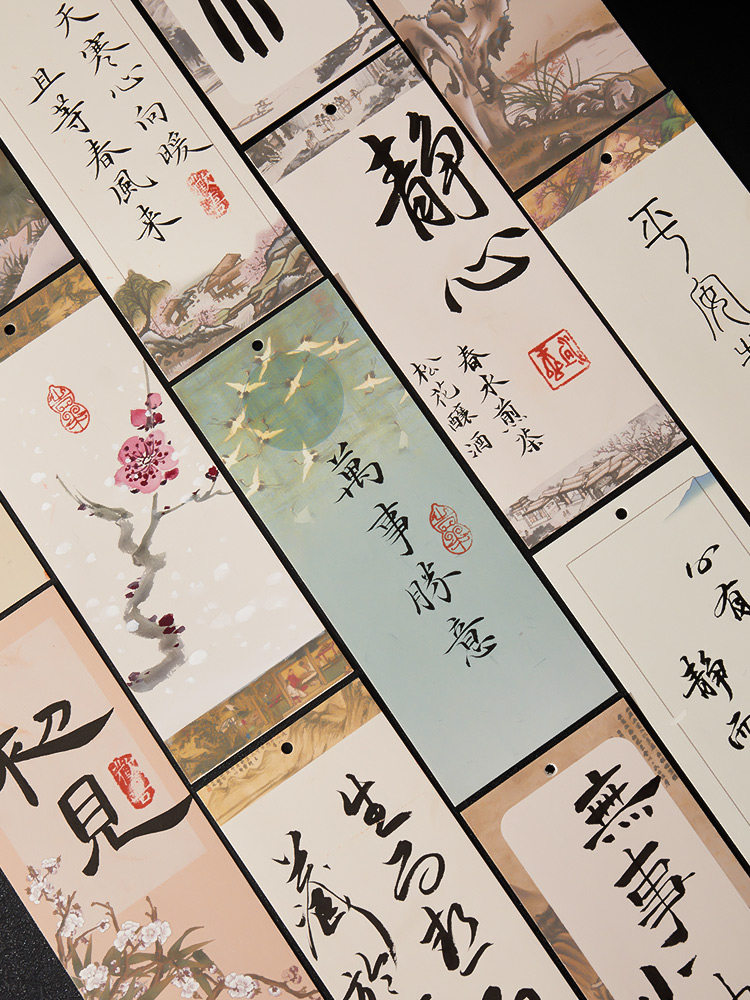 天寒心向暖
且等春風来
静心
春水煎茶
松花釀酒
平
萬事勝意
心有静而
初見
生而
藏於
無事小